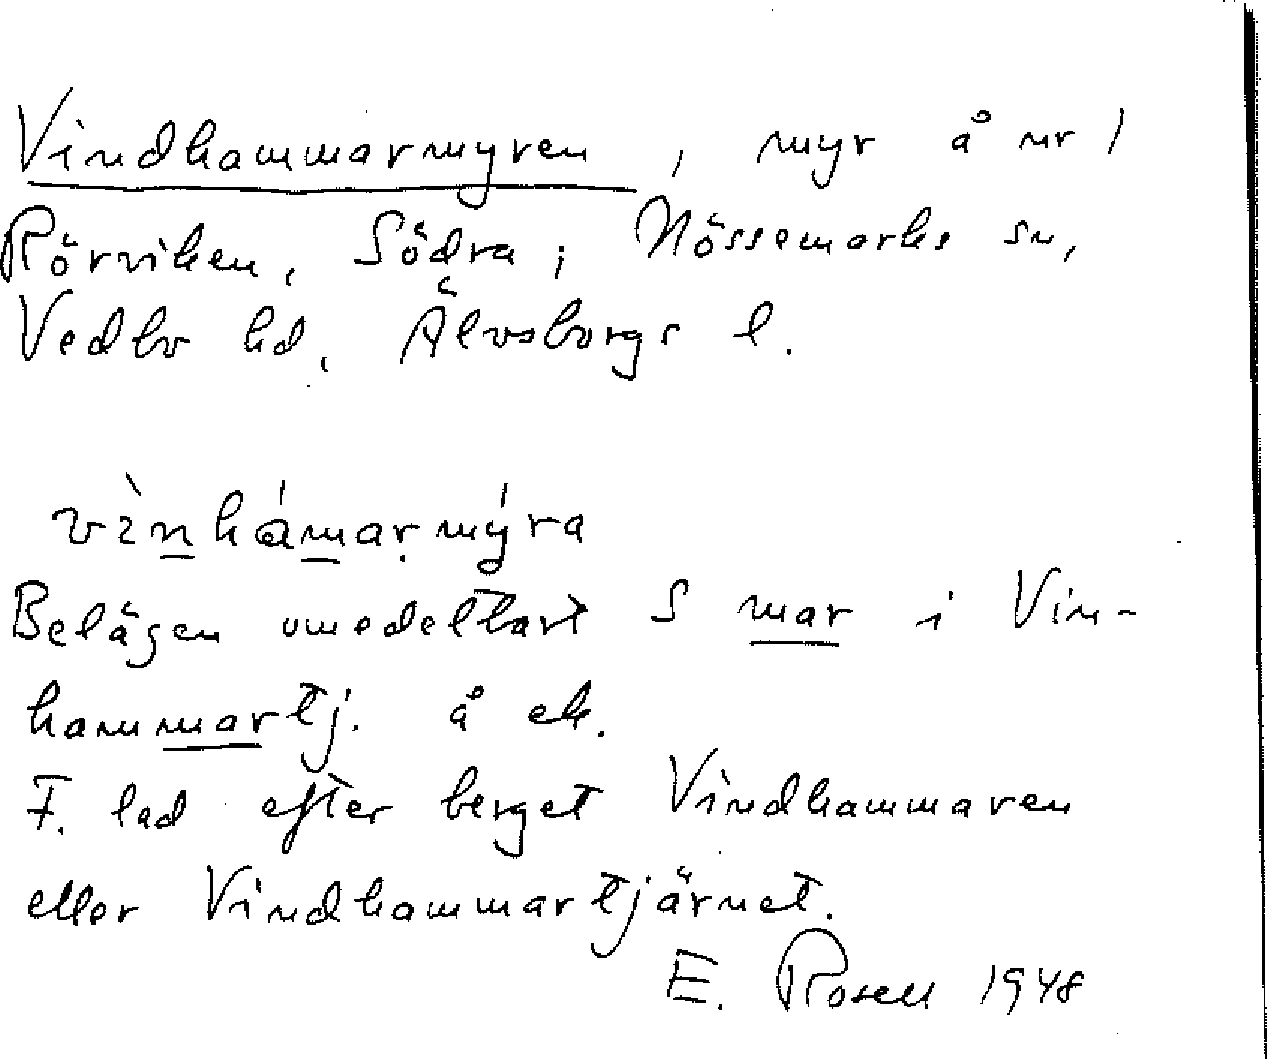 Vindhammarmyren, myr å nr 1
Rörviken, Södra; Nössemarks sn,
Vedbo hd, Älvsborgs l.
vìnhámarmýra
Belägen omedelbart S mar i Vin-
hammartj. å ek.
F. led efter berget Vindhammaren
eller Vindhammartjärnet.
E. Rosell 1948